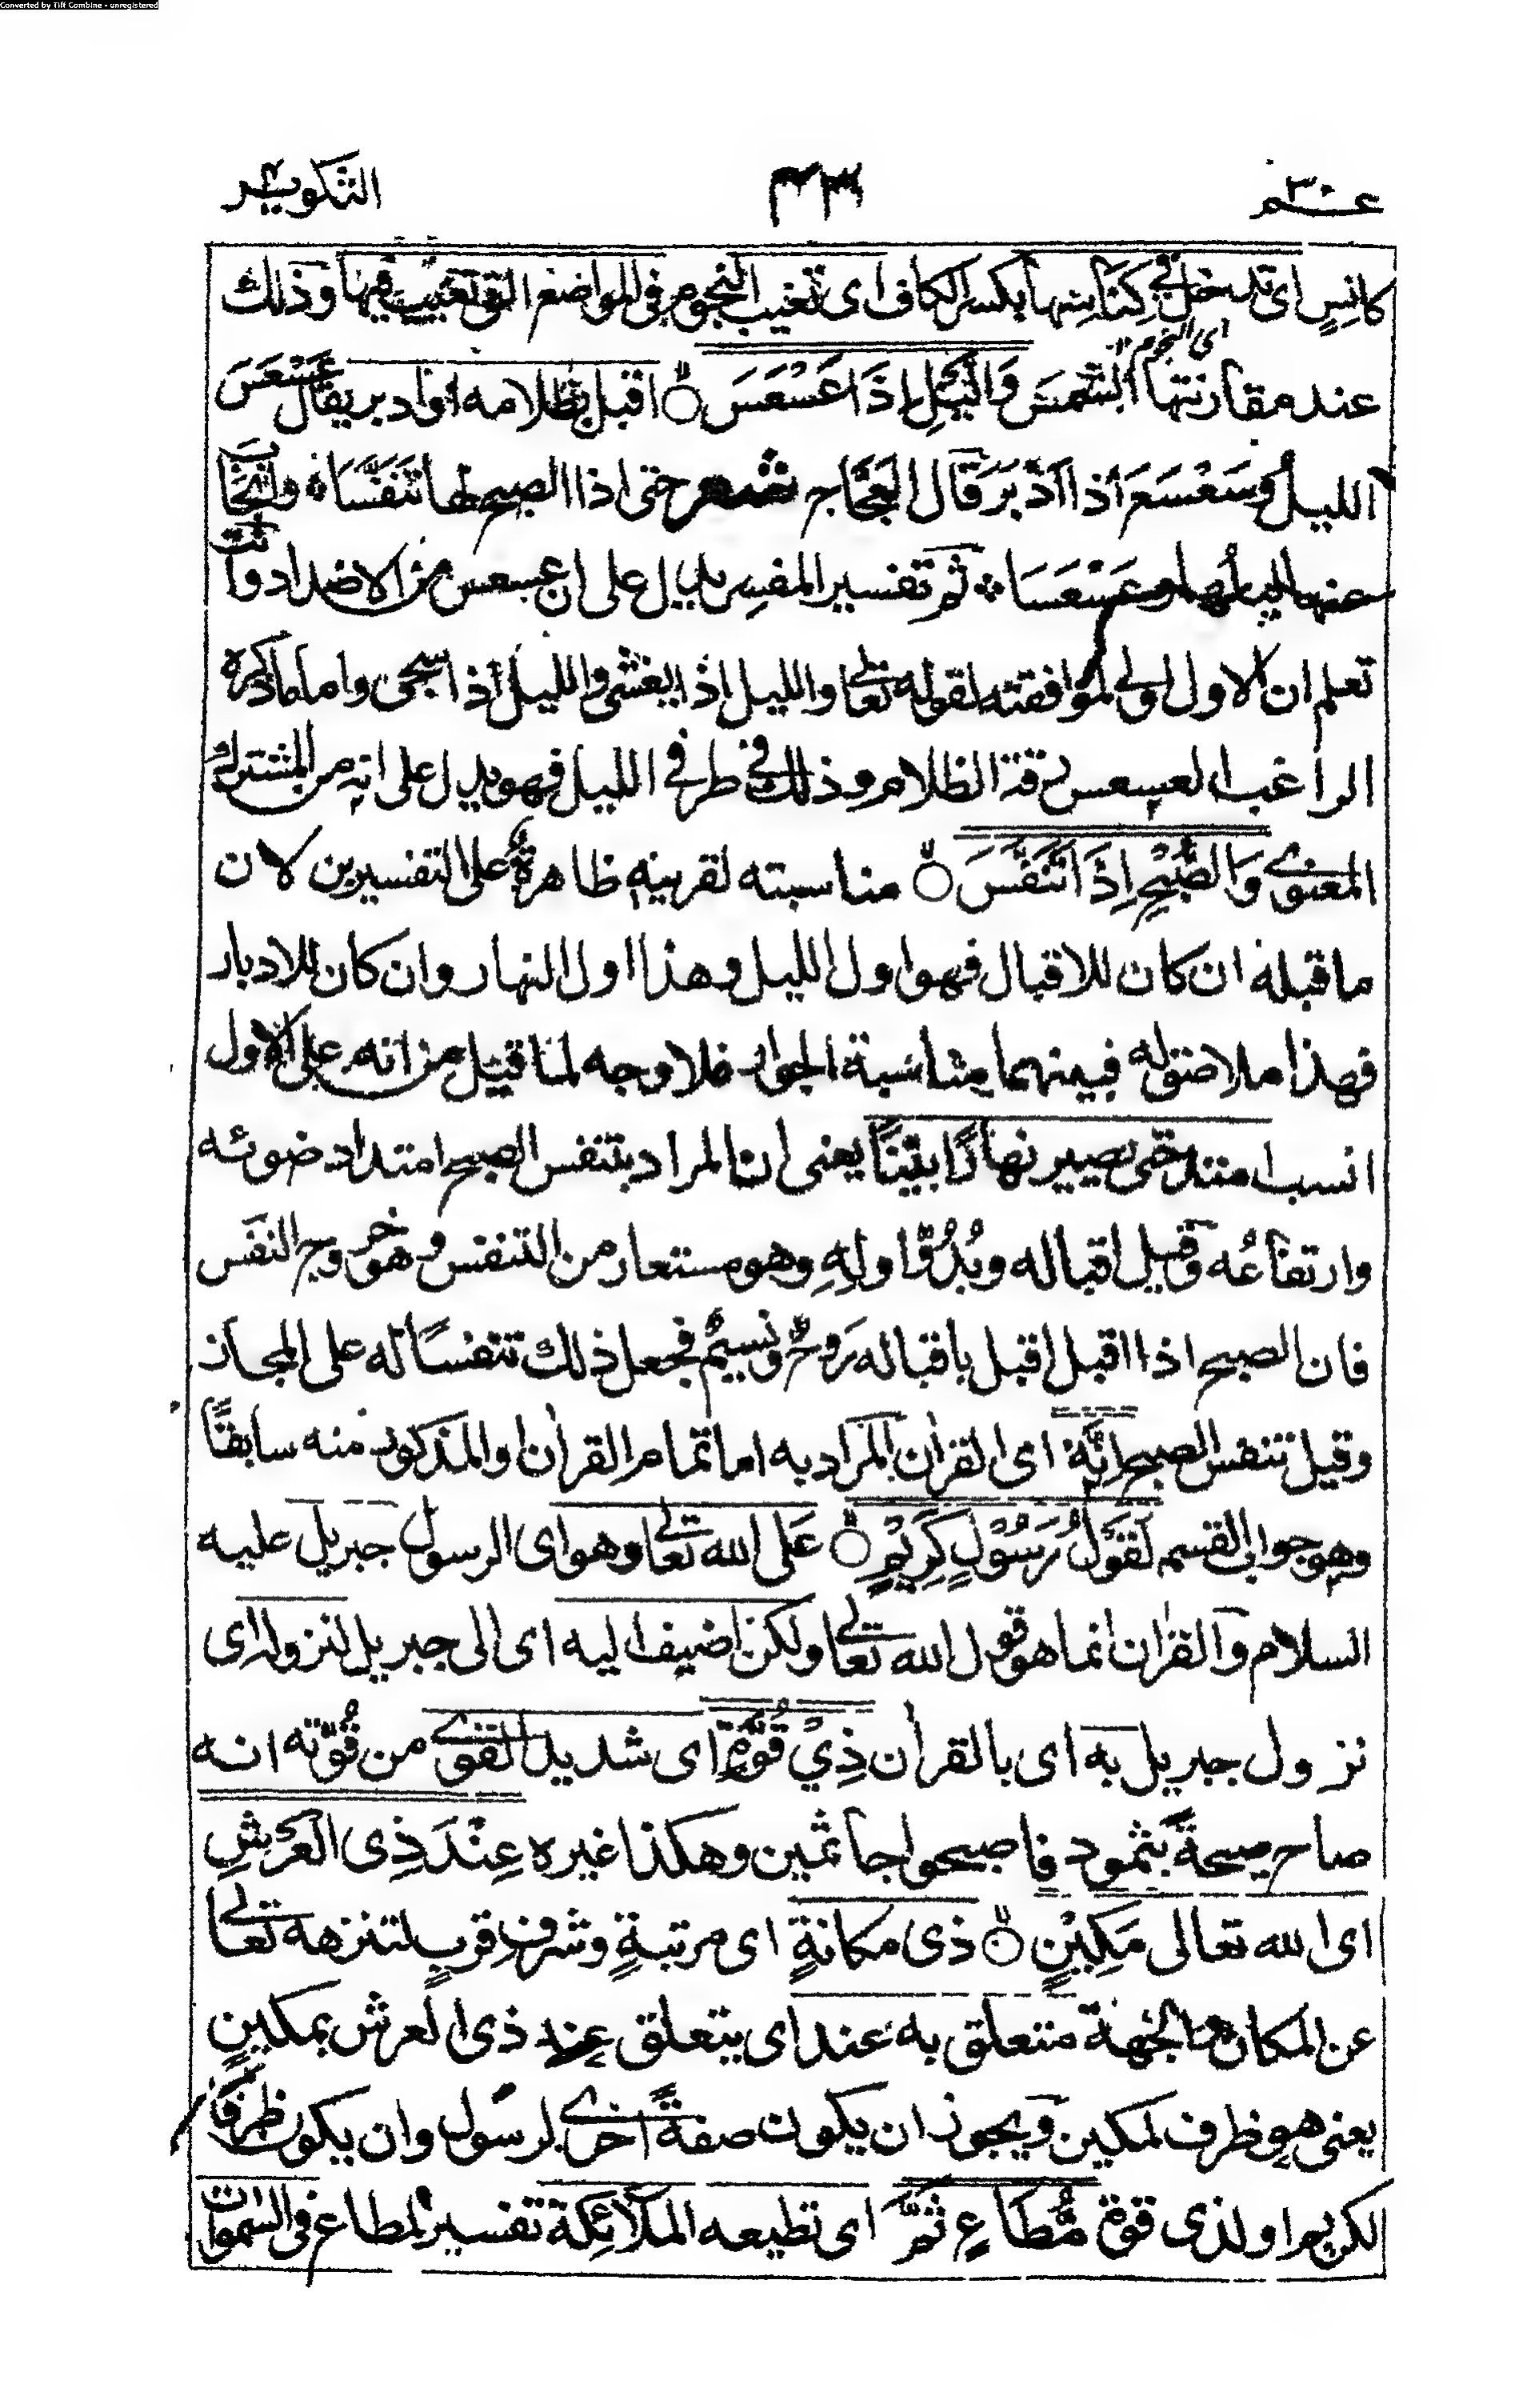 Converted by Tiff Combine - unregistered
عـم ٣٠
٤٣٣
التكوير
كانِسٍ اى تدخل فى كِنَاسِنها بكسر الكاف اى تغيب النجوم فى المواضع التى تغيب فيها وذلك
اى النجوم
عند مقارنتها الشمسَ وَالَّيْلِ اِذَا عَسْعَسَ اقبل بظلامه او ادبر يقال عَسْعَسَ
الليلُ وسَعْسَعَ اذا اَدْبَرَ قال العَجَّاج شعر حتى اذا الصبح لها تَنَفَّسَا وانْجَابَ
عنها ليلُها وعَسْعَسَا ثم تفسير المفسر يدل على ان عسعس من الاضداد وانت
تعلم ان الاول اولى لموافقته لقوله تعالى والليل اذا يغشى والليل اذا سجى واما ما ذكره
الراغب العسعس رقة الظلام وذلك فى طرفى الليل فهو يدل على انه من المشترك
المعنوى وَالصُّبْحِ اِذَا تَنَفَّسَ مناسبته لقرينه ظاهرةٌ على التفسيرين لان
ما قبله ان كان للاقبال فهو اول الليل وهذا اول النهار وان كان للادبار
فهذا ملاصق له فبينهما مناسبة الجوار فلا وجه لما قيل من انه على الاول
انسب امتد حتى يصير نهارًا بيّنًا يعنى ان المراد بتنفس الصبح امتداد ضوئه
وارتفاعُه وقيل اقباله وبُدُوّ اولهِ وهو مستعار من التنفس وهو خروج النفَس
فان الصبح اذا اقبل اقبل باقباله رَوحٌ ونسيمٌ فجعل ذلك تنفسًا له على المجاز
وقيل تنفس الصبح اِنَّهٗ اى القرآن المراد به اما تمام القرآن والمذكور منه سابقًا
وهو جواب القسم لَقَوْلُ رَسُوْلٍ كَرِيْمٍ عَلى الله تعالى وهو اى الرسول جبريل عليه
السلام والقرآن انما هو قول الله تعالى ولكن اضيف اليه اى الى جبريل لنزوله اى
نزول جبريل به اى بالقرآن ذِيْ قُوَّةٍ اى شديد القوى من قُوّته انه
صاح صيحةً بثمود فاصبحوا جاثمين وهكذا غيره عِنْدَ ذِى الْعَرْشِ
اى الله تعالى مَكِيْنٍ ذى مكانةٍ اى مرتبةٍ وشرفِ قربٍ لتنزهه تعالى
عن المكان والجهة متعلق به عند اى يتعلق عند ذى العرش بمكينٍ
يعنى هو ظرف لمكين ويجوز ان يكون صفةً اخرى لرسول وان يكون ظرفًا
لكريم او لذى قوة مُّطَاعٍ ثَمَّ اى تطيعه الملآئكة تفسير لمطاع فى السموات